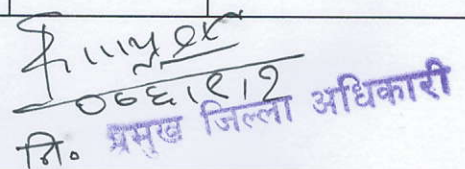 ०७६।९।१
नि. प्रमुख जिल्ला अधिकारी